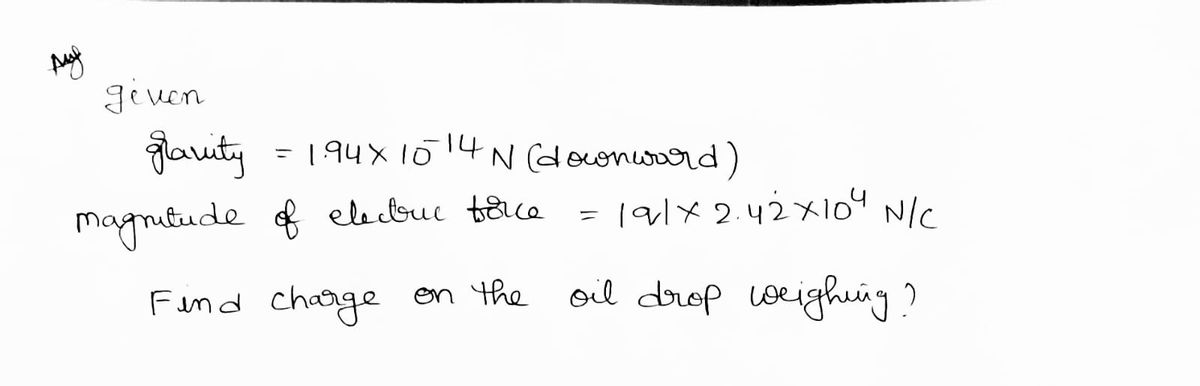 given
gravity = 1.94 × 10⁻¹⁴ N (downward)
magnitude of electric force = |q| × 2.42 × 10⁴ N/C
Find charge on the oil drop weighing ?